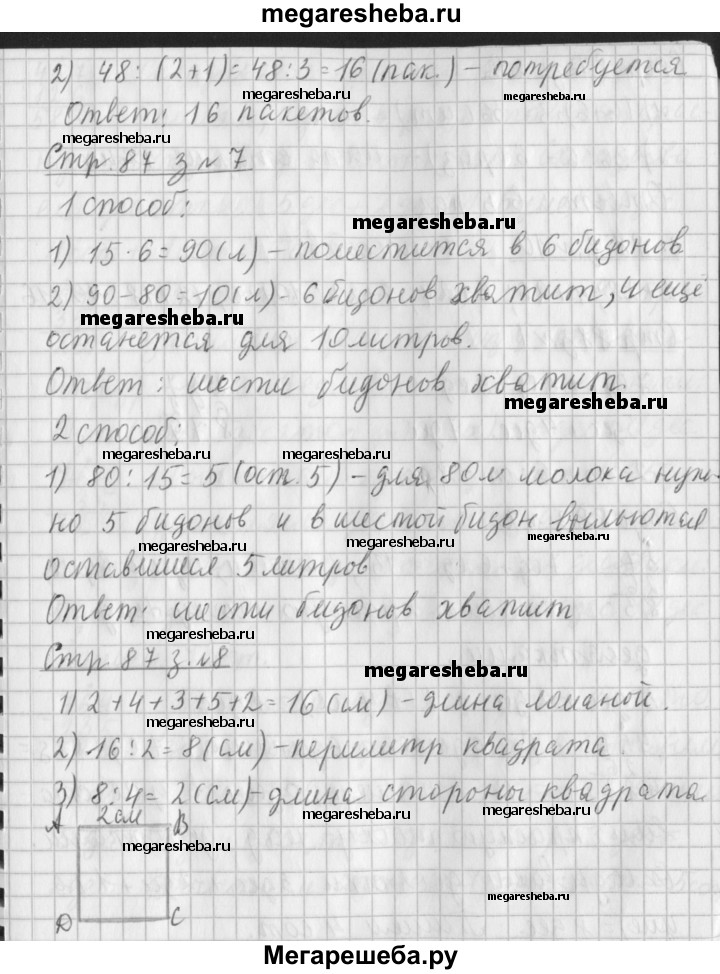 megaresheba.ru
2) 48 : (2+1) = 48 : 3 = 16 (пак.) – потребуется
megaresheba.ru megaresheba.ru
Ответ: 16 пакетов.
megaresheba.ru
Стр. 87 з №7
1 способ:
megaresheba.ru
1) 15 · 6 = 90 (л) – поместится в 6 бидонов
2) 90 – 80 = 10 (л) – 6 бидонов хватит, и ещё
megaresheba.ru
останется для 10 литров.
Ответ: шести бидонов хватит.
megaresheba.ru
2 способ:
megaresheba.ru megaresheba.ru
1) 80 : 15 = 5 (ост. 5) – для 80 л молока нуж-
но 5 бидонов и в шестой бидон выльются
megaresheba.ru megaresheba.ru megaresheba.ru
оставшиеся 5 литров
Ответ: шести бидонов хватит
megaresheba.ru
Стр 87 з. №8
megaresheba.ru
1) 2+4+3+5+2 = 16 (см) – длина ломаной.
megaresheba.ru
2) 16 : 2 = 8 (см) – периметр квадрата.
3) 8 : 4 = 2 (см) – длина стороны квадрата.
megaresheba.ru megaresheba.ru
A 2 см B
megaresheba.ru
megaresheba.ru
D C
Мегарешеба.ру